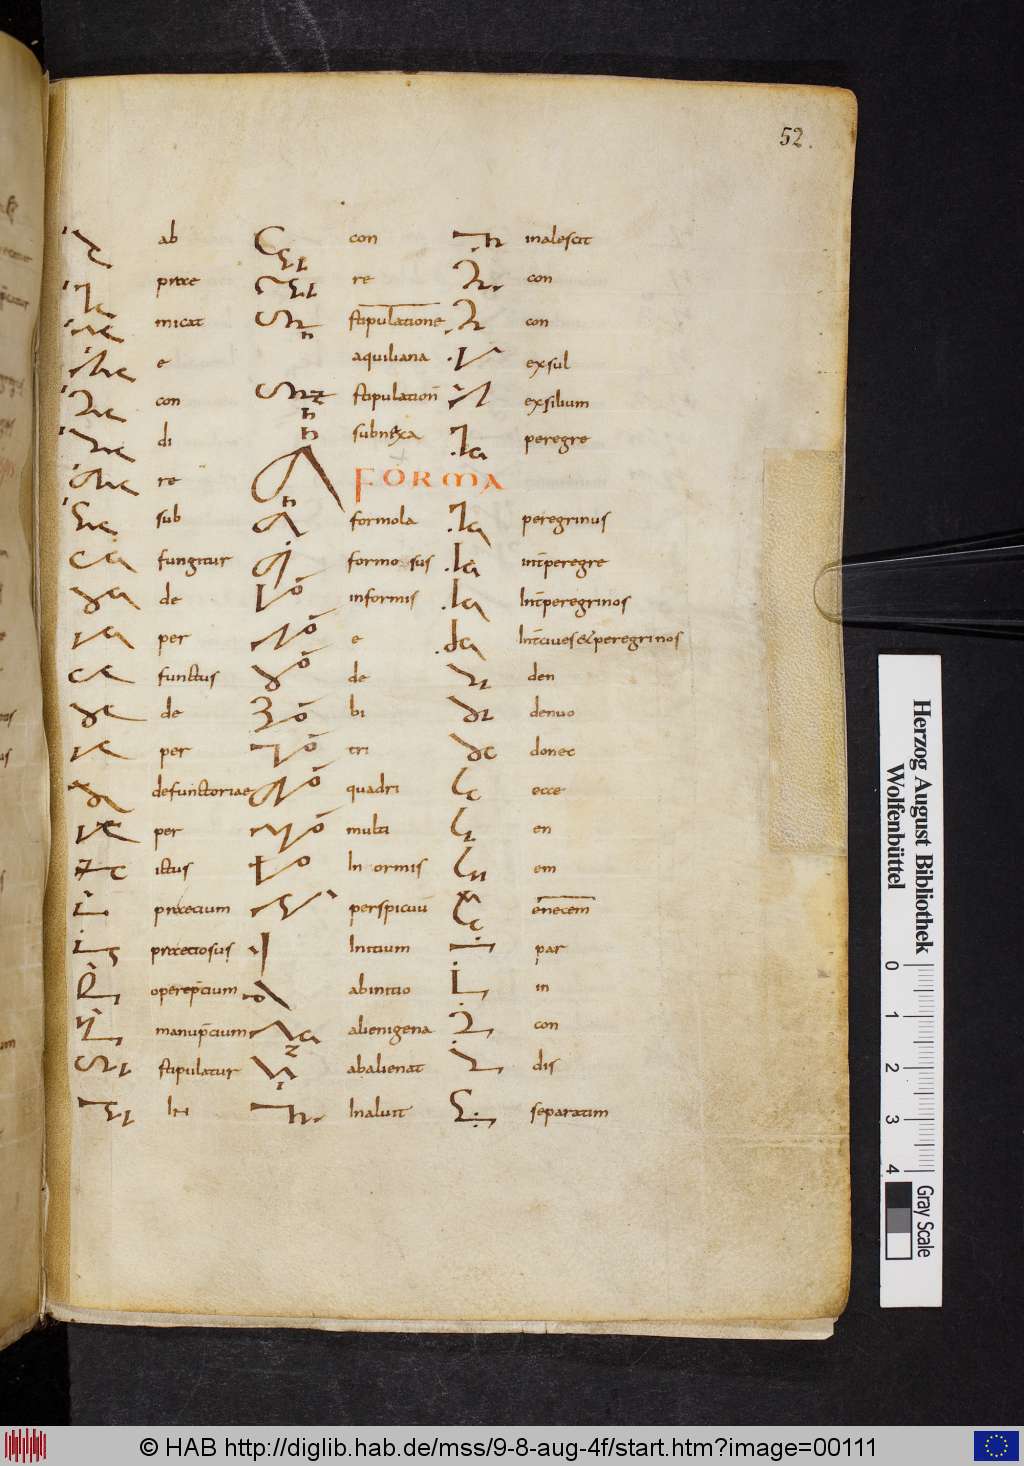 52.
ab
prae
micat
e
con
di
re
sub
fungitur
de
per
functus
de
per
defunctoriae
per
ictus
praecium
praeciosus
manup̄cium
stipulatur
IN
con
re
stipulatione
aquiliana
stipulation̄
subnexa
FORMA
formola
formo sus
informis
e
de
bi
tri
quadri
multi
In ormis
perspicuū
Initium
abinitio
alienigena
abalienat
Inaluit
inalescit
con
con
exsul
exsilium
peregre
peregrinus
int̄peregre
Int̄peregrinos
Int̄ciues&peregrinos
den
denuo
donec
ecce
en
em
par
in
con
dis
separatim
Herzog August Bibliothek
Wolfenbüttel
0 1 2 3 4
Gray Scale
© HAB http://diglib.hab.de/mss/9-8-aug-4f/start.htm?image=00111